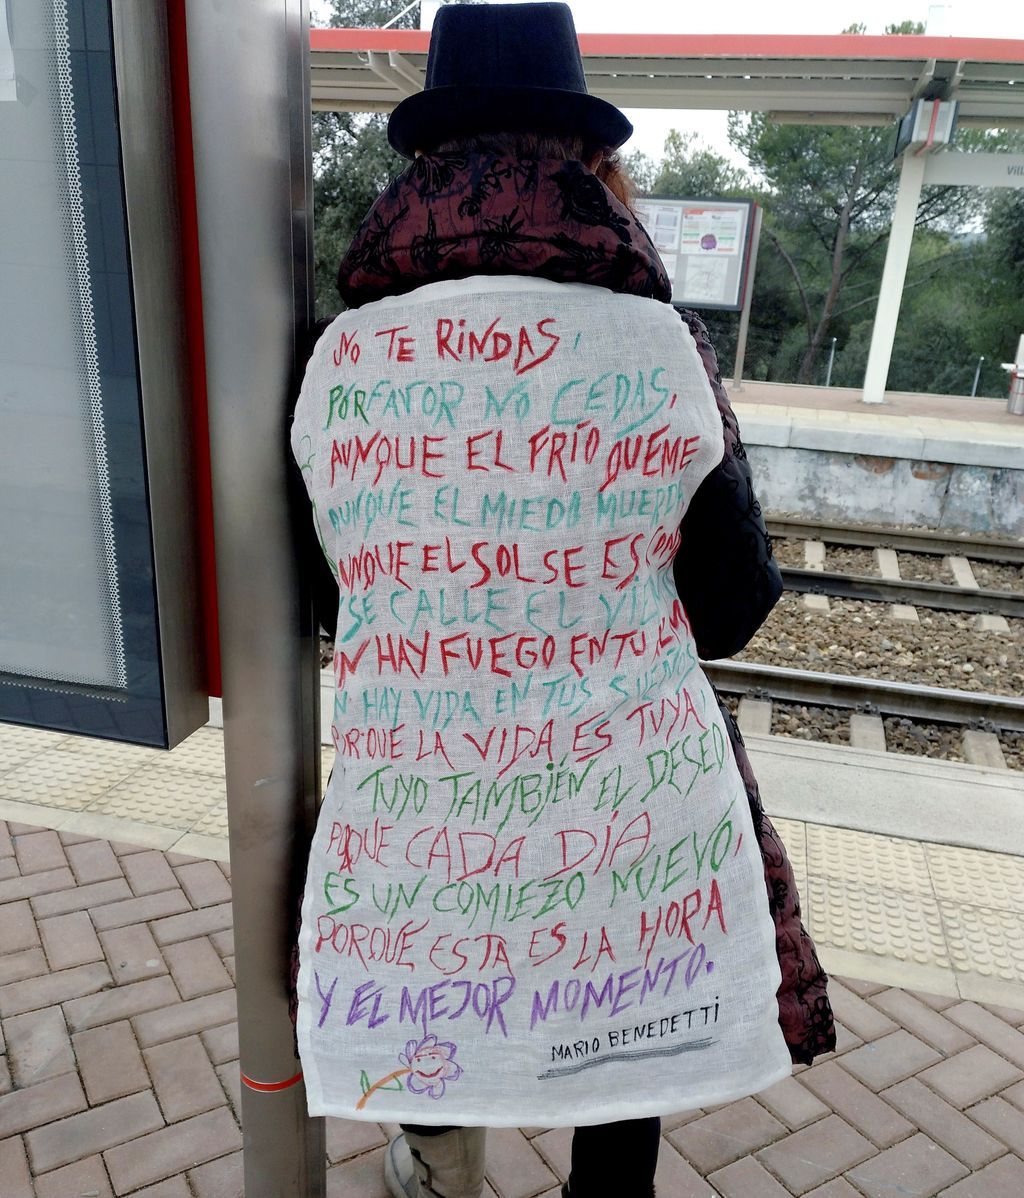 NO TE RINDAS,
PORFAVOR NO CEDAS,
AUNQUE EL FRÍO QUEME
AUNQUE EL MIEDO MUERDA
AUNQUE EL SOL SE
Y SE CALLE EL
HAY FUEGO EN TU
HAY VIDA EN TUS SUEÑOS
PORQUE LA VIDA ES TUYA
TUYO TAMBIÉN EL DESEO
PORQUE CADA DÍA
ES UN COMIEZO NUEVO,
PORQUE ESTA ES LA HORA
Y EL MEJOR MOMENTO.
MARIO BENEDETTI